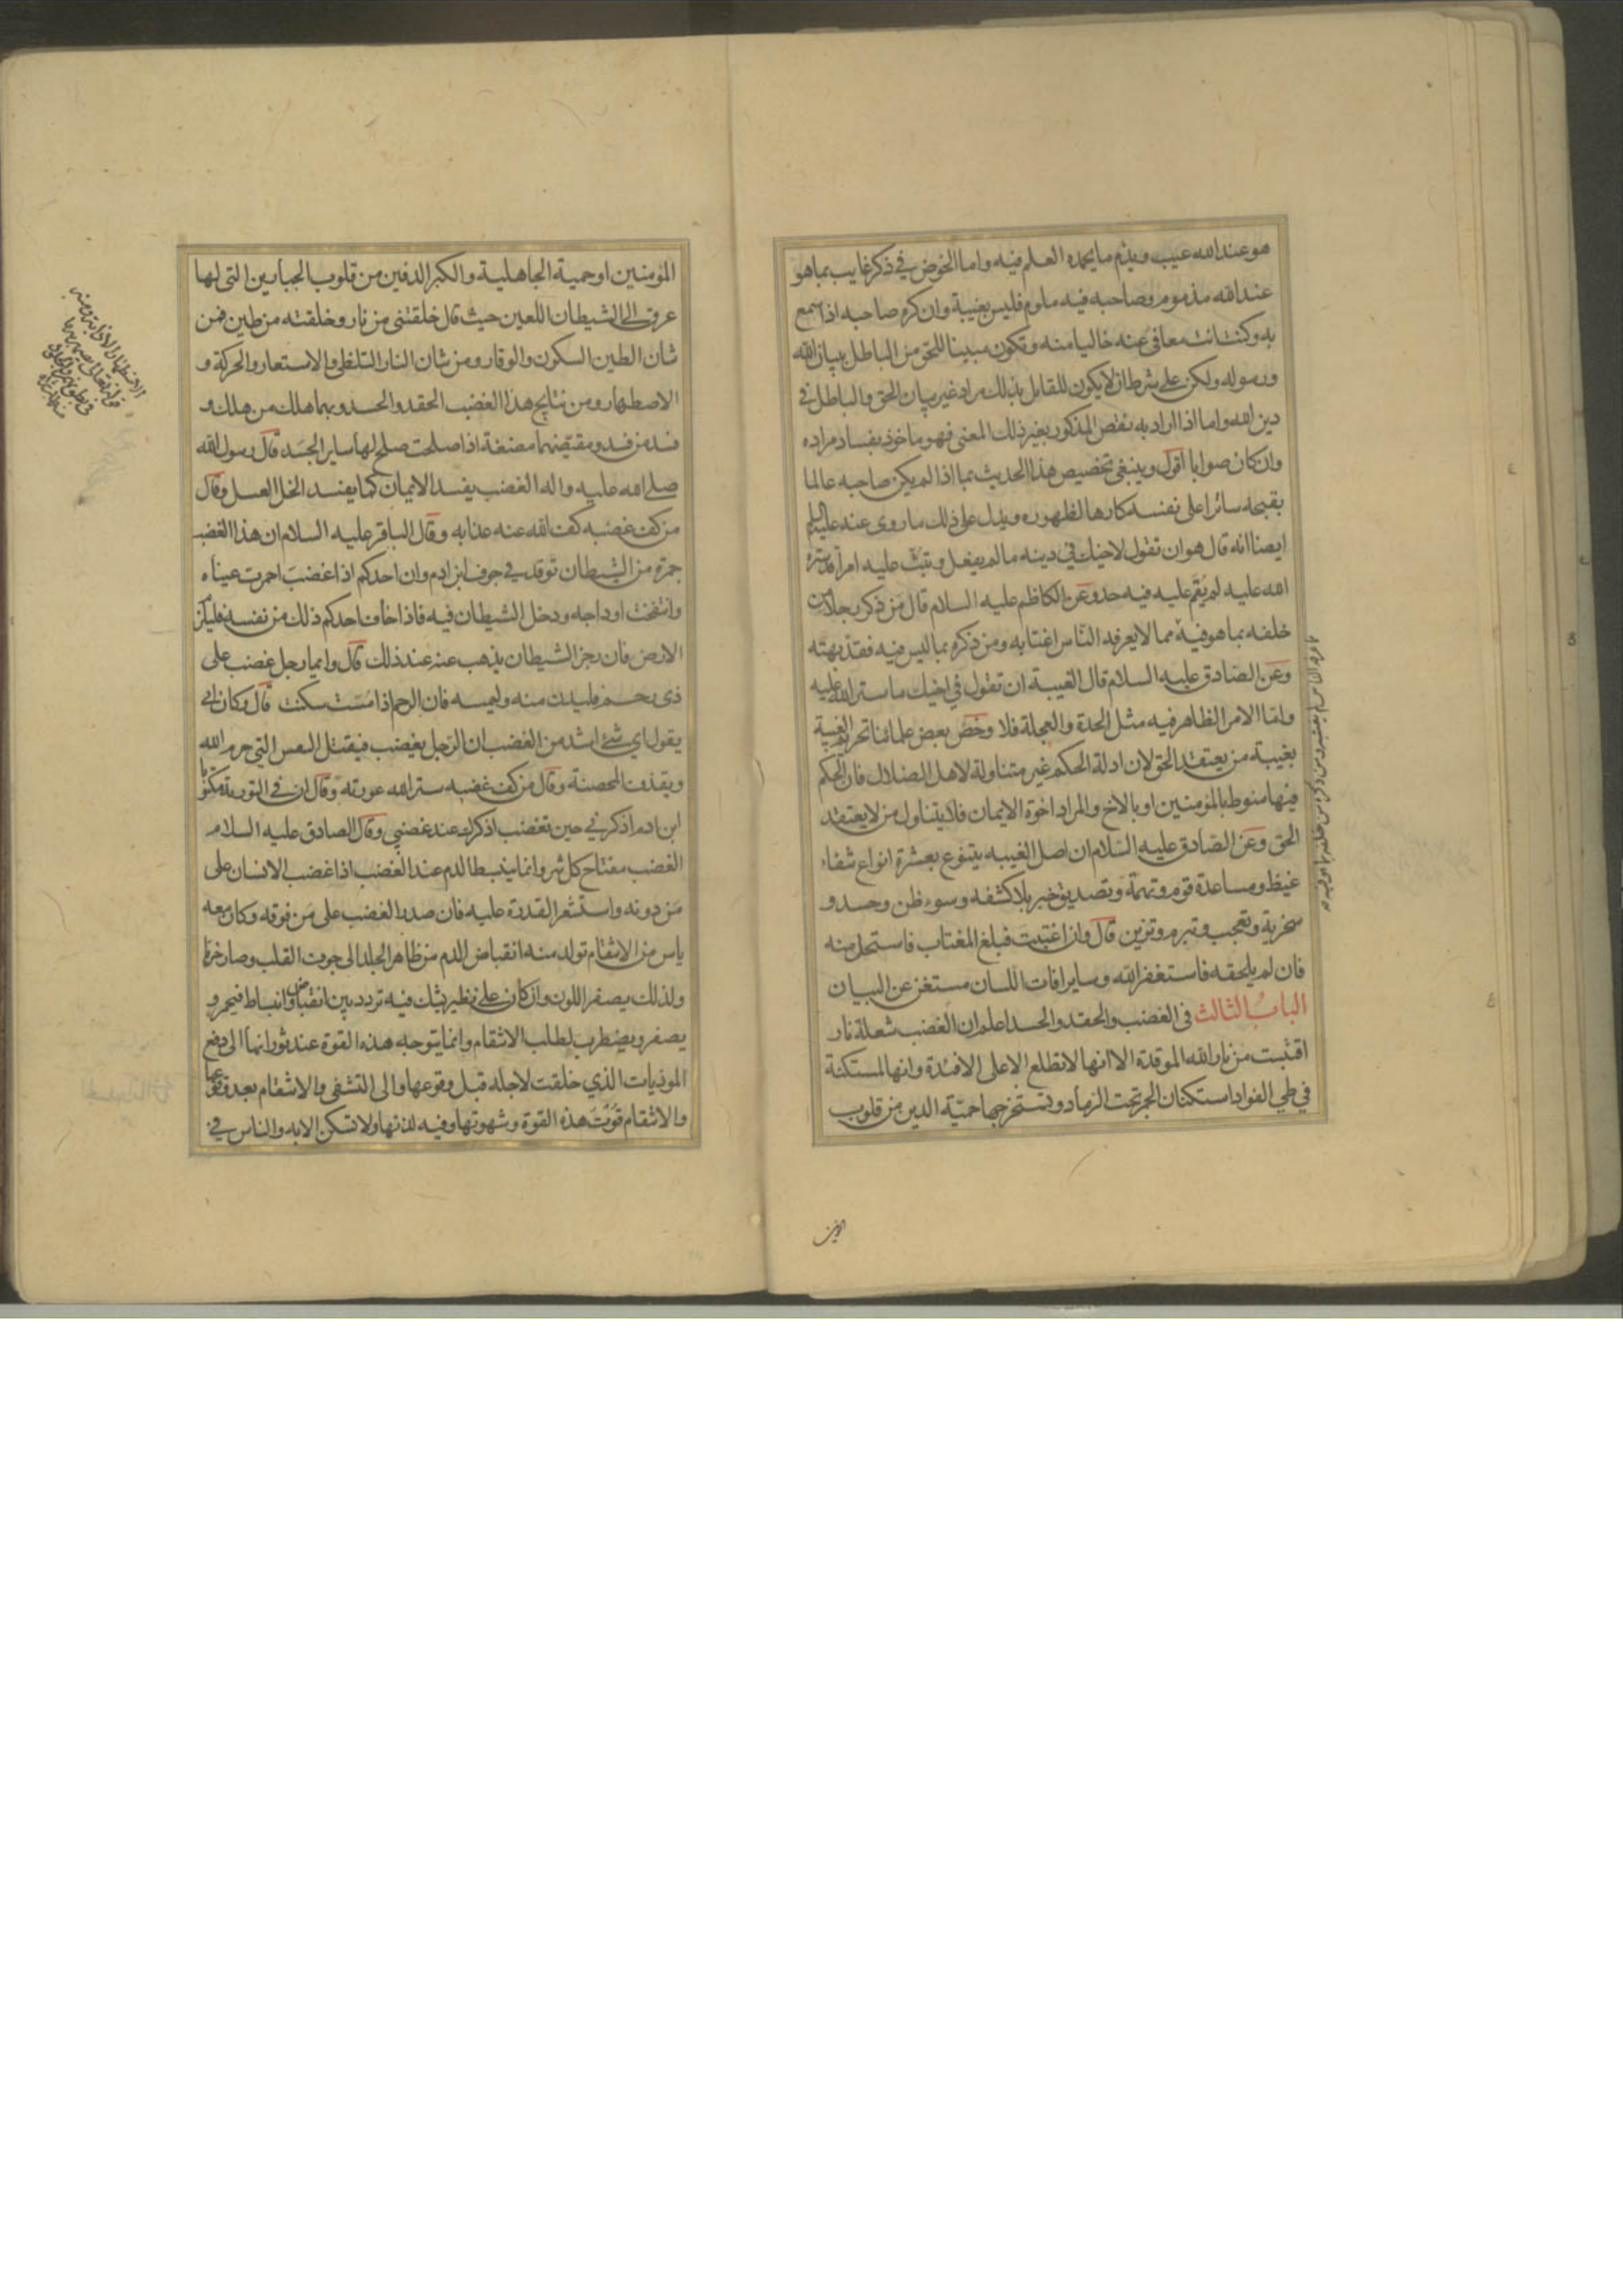 هو عند الله عيب ويذم ما يحمده العلم فيه واما الخوض في ذكر غايب بما هو
عند الله مذموم وصاحبه فيه ملوم فليس بغيبة وان كره صاحبه اذا سمع
به وكنت انت معافى عنه خاليا منه وتكون مبينا للحق من الباطل ببيان الله
ورسوله ولكن على شرط ان لا يكون للقايل بذلك مراد غير بيان الحق والباطل في
دين الله واما اذا اراد به نقص المذكور بغير ذلك المعنى فهو ماخوذ بفساد مراده
وان كان صوابا اقول وينبغي تخصيص هذا الحديث بما اذا لم يكن صاحبه عالما
بقبحه ساترا على نفسه كارها لظهوره ويدل على ذلك ما روى عنه عليه السلم
ايضا انه قال هو ان تقول لاخيك في دينه ما لم يفعل وتبث عليه امرا قد ستره
الله عليه لم يقم عليه فيه حد وعن الكاظم عليه السلام قال من ذكر رجلا من
خلفه بما هو فيه مما لا يعرفه الناس اغتابه ومن ذكره بما ليس فيه فقد بهته
وعن الصادق عليه السلام قال الغيبة ان تقول في اخيك ما ستر الله عليه
واما الامر الظاهر فيه مثل الحدة والعجلة فلا وخص بعض علمائنا تحريم الغيبة
بغيبة من يعتقد الحق لان ادلة الحكم غير متناولة لاهل الضلال فان الحكم
فيها منوط بالمؤمنين او بالاخ والمراد اخوة الايمان فلا يتناول من لا يعتقد
الحق وعن الصادق عليه السلام ان اصل الغيبه يتنوع بعشرة انواع شفاء
غيظ ومساعدة قوم وتهمة وتصديق خبر بلا كشفه وسوء ظن وحسد و
سخرية وتعجب وتبرم وتزين قال وان اغتبت فبلغ المغتاب فاستحل منه
فان لم يلحقه فاستغفر الله وساير افات اللسان مستغن عن البيان
الباب الثالث في الغضب والحقد والحسد اعلم ان الغضب شعلة نار
اقتبست من نار الله الموقدة الا انها لا تطلع الا على الافئدة وانها لمستكنة
في طي الفواد استكنان الجمر تحت الرماد وتستخرجها حمية الدين من قلوب
المؤمنين او حمية الجاهلية والكبر الدفين من قلوب الجبارين التي لها
عرق الى الشيطان اللعين حيث قال خلقتني من نار وخلقته من طين فمن
شان الطين السكون والوقار ومن شان النار التلظي والاستعار والحركة و
الاصطهار ومن نتايج هذا الغضب الحقد والحسد وبهما هلك من هلك و
فسد من فسد ومقيضهما مضغة اذا صلحت صلح لها ساير الجسد قال رسول الله
صلى الله عليه واله الغضب يفسد الايمان كما يفسد الخل العسل وقال
من كف غضبه كف الله عنه عذابه وقال الباقر عليه السلام ان هذا الغضب
جمرة من الشيطان توقد في جوف ابن ادم وان احدكم اذا غضب احمرت عيناه
وانتفخت اوداجه ودخل الشيطان فيه فاذا خاف احدكم ذلك من نفسه فليلزم
الارض فان رجز الشيطان يذهب عنه عند ذلك قال وايما رجل غضب على
ذي رحم فليدن منه وليمسه فان الرحم اذا مست سكنت قال وكان ابي
يقول اي شئ اشد من الغضب ان الرجل يغضب فيقتل النفس التي حرم الله
ويقذف المحصنة وقال من كف غضبه ستر الله عورته وقال ان في التورية مكتوبا
ابن ادم اذكرني حين تغضب اذكرك عند غضبي وقال الصادق عليه السلام
الغضب مفتاح كل شر وانما ينبسط الدم عند الغضب اذا غضب الانسان على
من دونه واستشعر القدرة عليه فان صدر الغضب على من فوقه وكان معه
ياس من الانتقام تولد منه انقباض الدم من ظاهر الجلد الى جوف القلب وصار حزنا
ولذلك يصفر اللون وان كان على نظير يشك فيه تردد بين انقباض وانبساط فيحمر و
يصفر ويضطرب لطلب الانتقام وانما يتوجه هذه القوة عند ثورانها الى دفع
الموذيات الذي خلقت لاجله قبل وقوعها والى التشفى والانتقام بعد وقوعها
والانتقام قوت هذه القوة وشهوتها وفيه لذتها ولا تسكن الا به والناس في